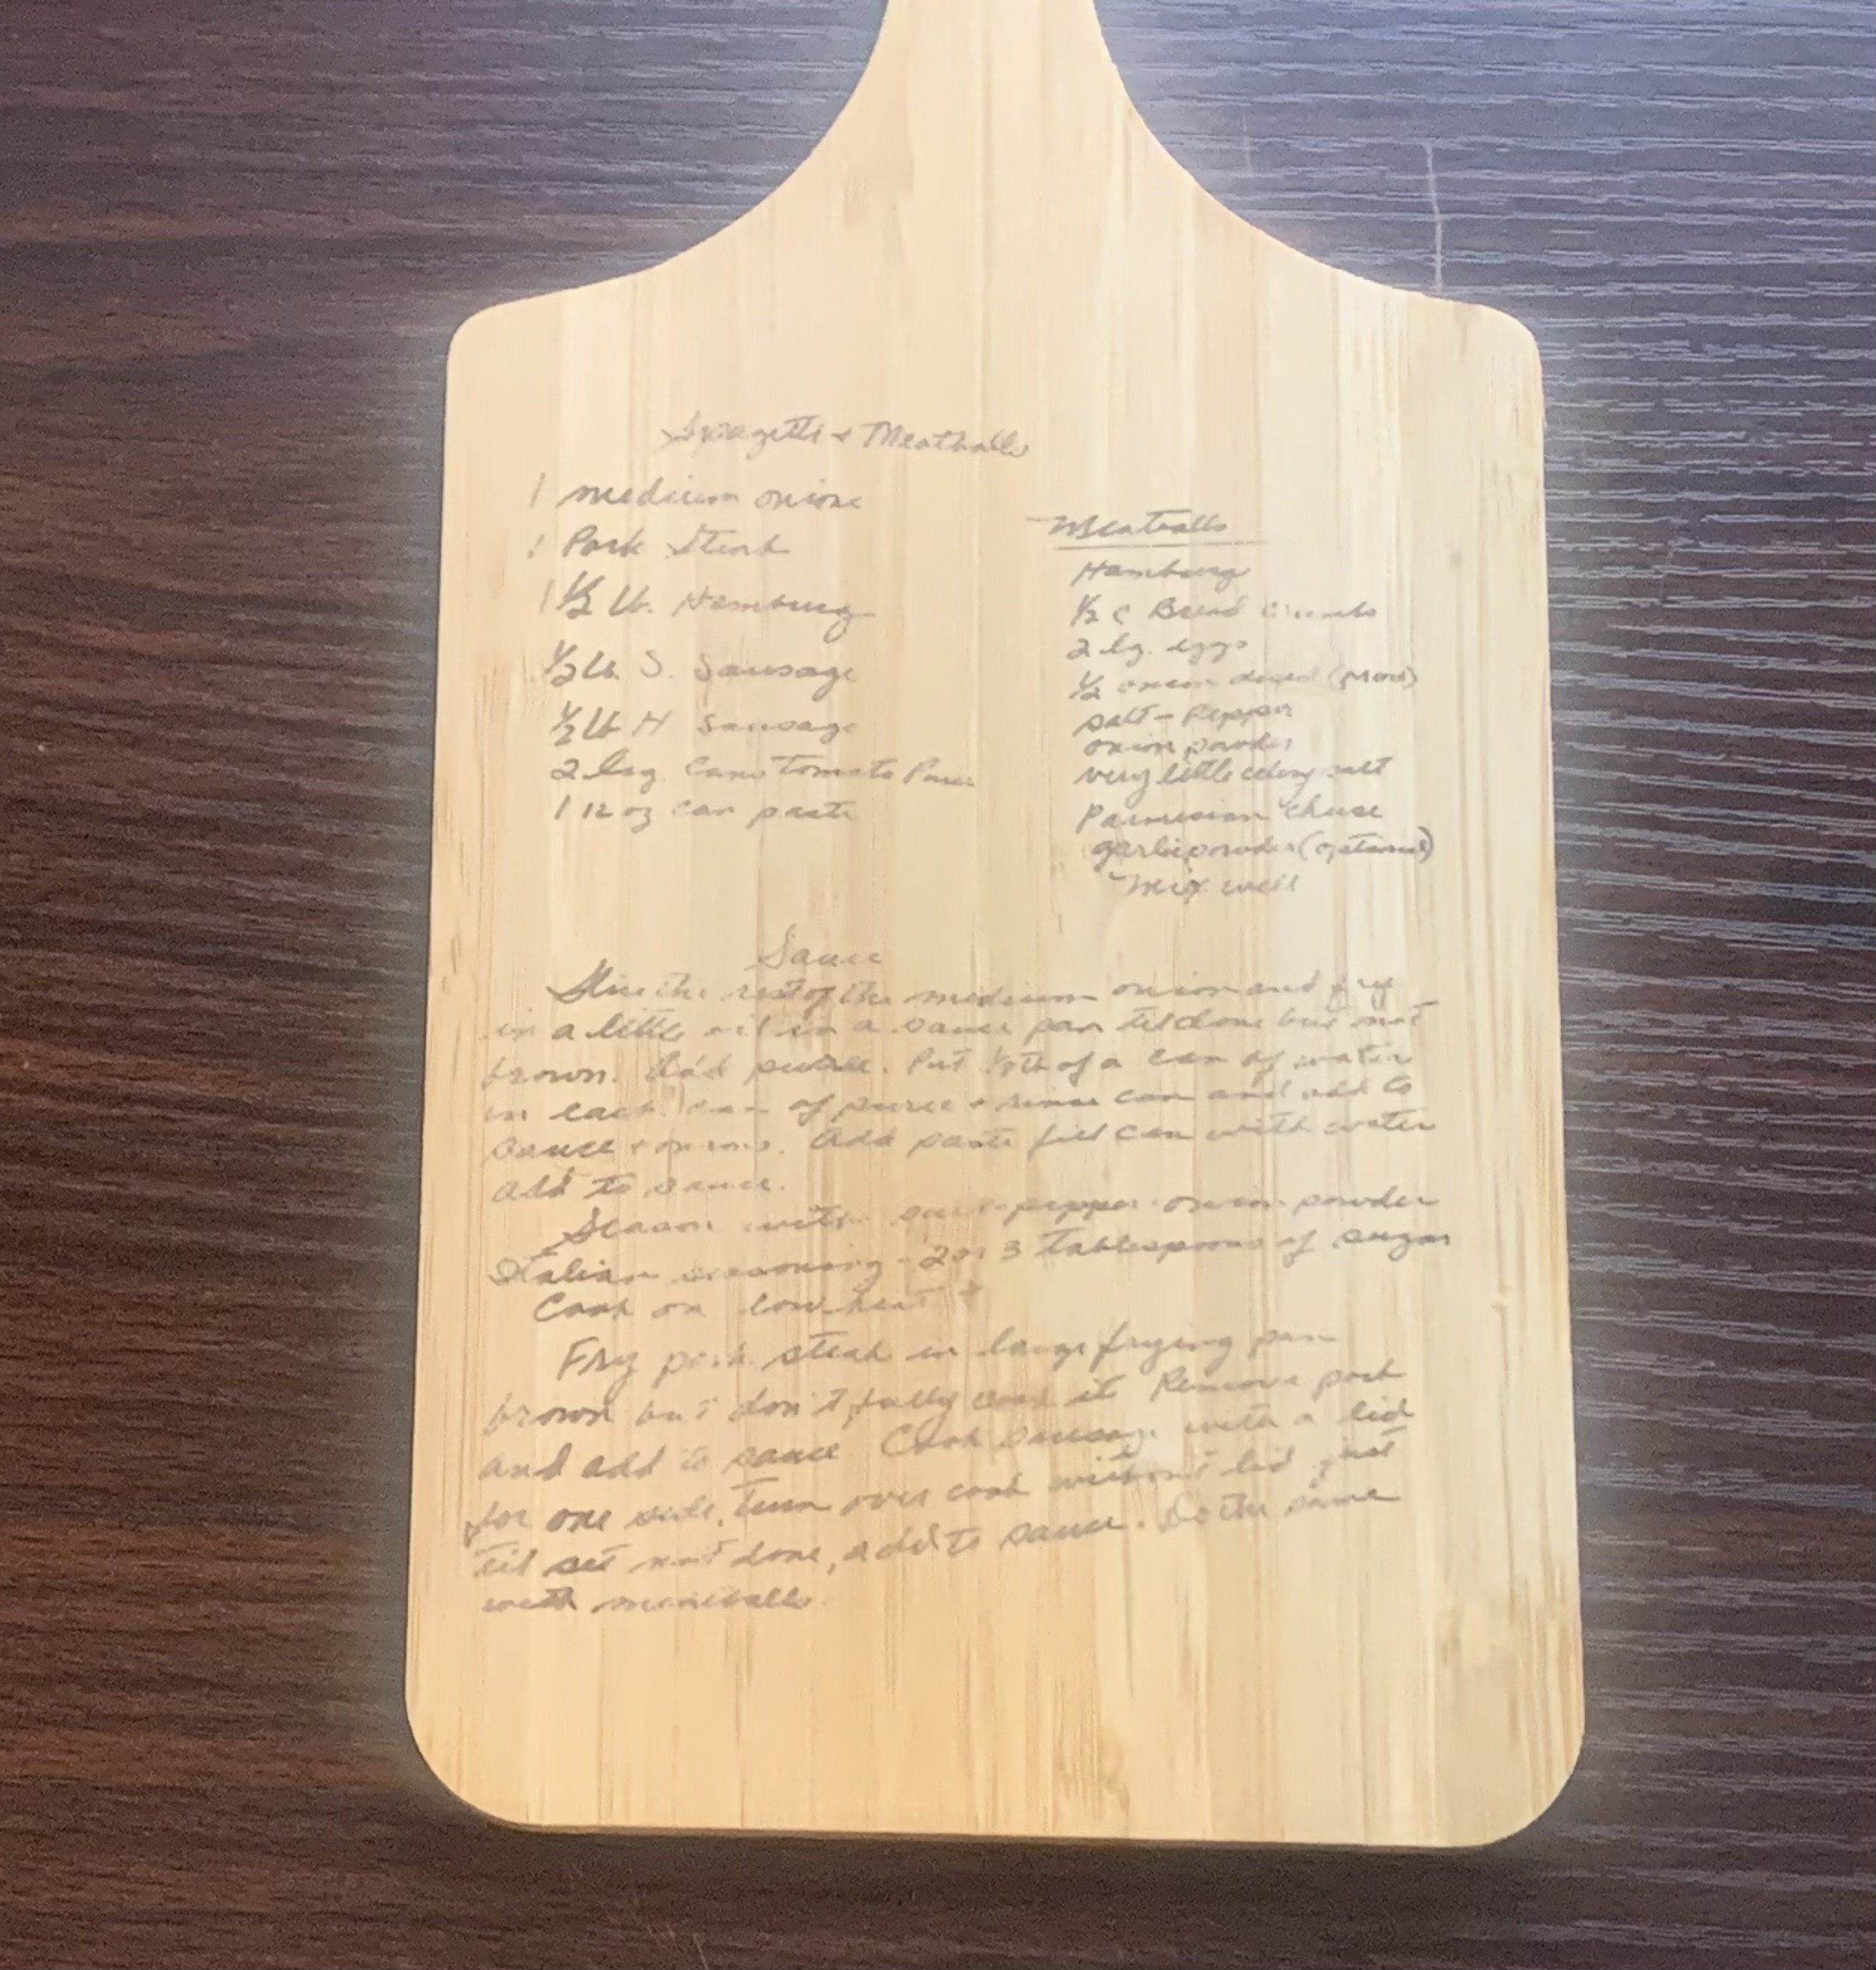 Spagetti + Meatballs
1 medium onion
1 Pork Steak
1 1/2 lb. Hamburg
1/2 lb. S. Sausage
1/2 lb H. Sausage
2 Cans Tomato Puree
1 12 oz can paste
Meatballs
Hamburg
1/2 c Bread crumbs
2 lg. eggs
1/2 onion diced
salt - Pepper
onion powder
very little celery salt
Parmesian Cheese
garlic powder (optional)
Mix well
Sauce
the rest of the medium onion and fry
in a little oil in a sauce pan til done but not
brown. Add puree. Put of a can of water
in each can of puree + rinse can and add to
sauce + onions. Add paste fill can with water
add to sauce.
Season with salt - pepper - onion powder
Italian seasoning - 2 or 3 tablespoons of sugar
Cook on low heat +
Fry pork steak in large frying pan
brown but don't fully cook it Remove pork
and add to sauce. Cook sausage with a lid
for one side, turn over cook without lid just
til set not done, add to sauce. Do the same
with meatballs.